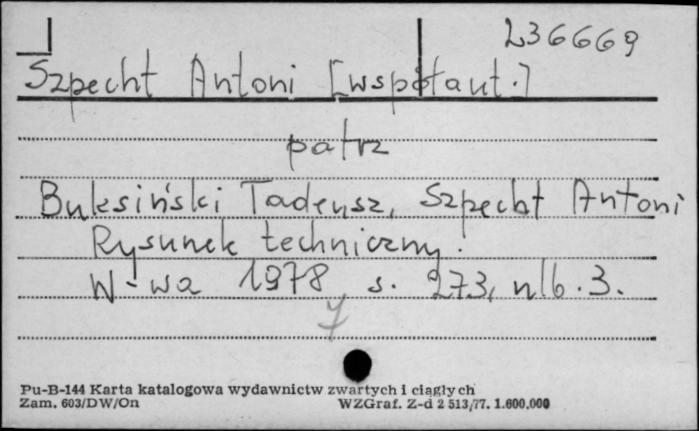 236669
Szpecht Antoni [współaut.]
patrz
Buksiński Tadeusz, Szpecht Antoni
Rysunek techniczny.
W-wa 1978 s. 273, nlb. 3.
7
Pu-B-144 Karta katalogowa wydawnictw zwartych i ciągłych
Zam. 603/DW/On WZGraf. Z-d 2 513/77. 1.600.000